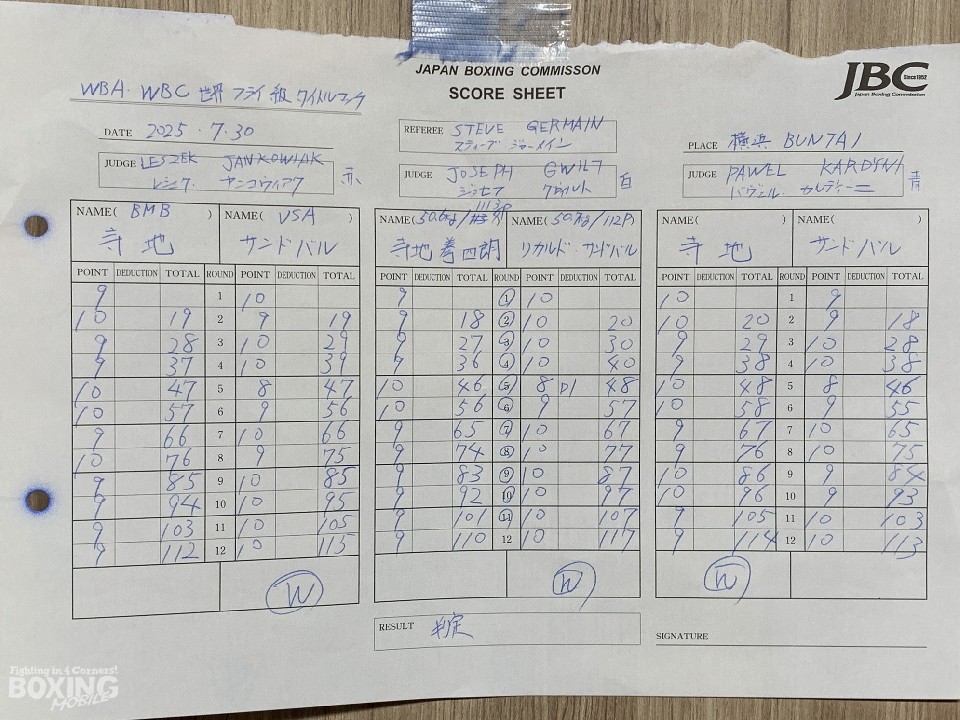 JAPAN BOXING COMMISSON
SCORE SHEET
JBC Since 1952
Japan Boxing Commission
WBA・WBC 世界フライ級タイトルマッチ
DATE 2025・7.30
REFEREE STEVE GERMAIN
スティーブ ジャーメイン
PLACE 横浜 BUNTAI
JUDGE LESZEK JANKOWIAK
レシェク ヤンコヴィアク 赤
JUDGE JOSEPH GWILT
ジョセフ グウィルト 白
JUDGE PAWEL KARDYNI
パヴェル カルディーニ 青
NAME( BMB ) NAME( USA )
寺地 サンドバル
POINT DEDUCTION TOTAL ROUND POINT DEDUCTION TOTAL
9 1 10
10 19 2 9 19
9 28 3 10 29
9 37 4 10 39
10 47 5 8 47
10 57 6 9 56
9 66 7 10 66
10 76 8 9 75
9 85 9 10 85
9 94 10 10 95
9 103 11 10 105
9 112 12 10 115
W
NAME(50.6kg/ NAME(50.7kg/112P)
寺地拳四朗 リカルド・サンドバル
POINT DEDUCTION TOTAL ROUND POINT DEDUCTION TOTAL
9 1 10
9 18 2 10 20
9 27 3 10 30
9 36 4 10 40
10 46 5 8 D1 48
10 56 6 9 57
9 65 7 10 67
9 74 8 10 77
9 83 9 10 87
9 92 10 10 97
9 101 11 10 107
9 110 12 10 117
W
NAME( ) NAME( )
寺地 サンドバル
POINT DEDUCTION TOTAL ROUND POINT DEDUCTION TOTAL
10 1 9
10 20 2 9 18
9 29 3 10 28
9 38 4 10 38
10 48 5 8 46
10 58 6 9 55
9 67 7 10 65
9 76 8 10 75
10 86 9 9 84
10 96 10 9 93
9 105 11 10 103
9 114 12 10 113
W
RESULT 判定
SIGNATURE
Fighting in 4 Corners!
BOXING
MOBILE